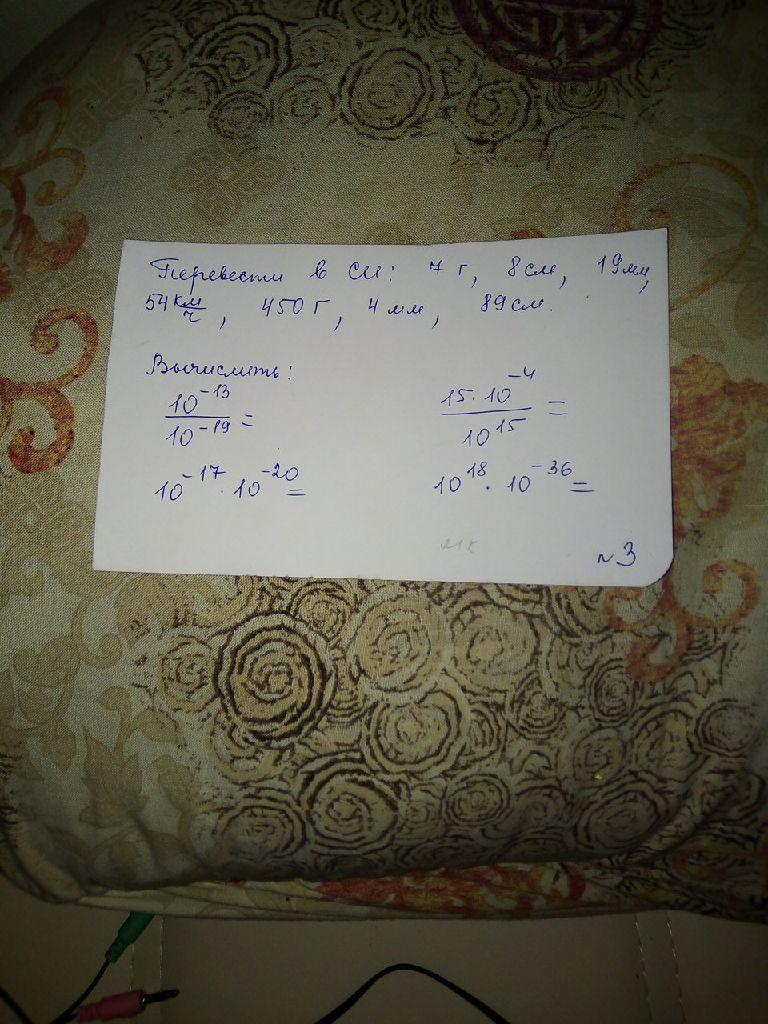 Перевести в СИ: 7 г, 8 см, 19 мм,
54 км/ч, 450 г, 4 мм, 89 см.
Вычислить:
10⁻¹³/10⁻¹⁹ = 15·10⁻⁴/10¹⁵ =
10⁻¹⁷·10⁻²⁰= 10¹⁸·10⁻³⁶=
№3